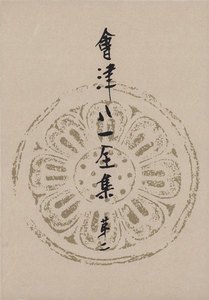 會津八一全集 第二